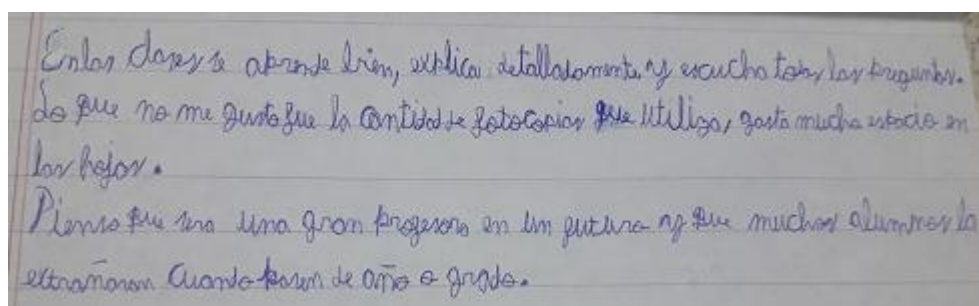 En las clases se aprende bien, explica detalladamente y escucha todas las preguntas.
Lo que no me gusto fue la cantidad de fotocopias que utiliza, gasta mucho espacio en
las hojas.
Pienso que sera una gran profesora en un futuro y que muchos alumnos la
extrañaran cuando pasen de año o grado.